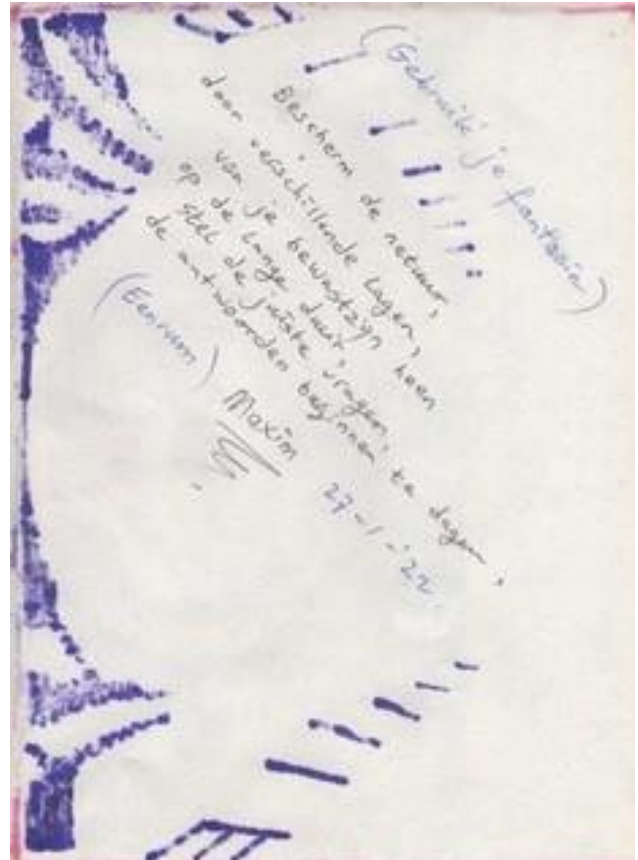 (Gebruik je fantasie)
Bescherm de natuur,
door verschillende lagen,
van je bewustzyn heen
op de lange duur,
stel de juiste vragen,
de antwoorden beginnen te dagen,
(Eenrum)
Maxim
27-1-'22